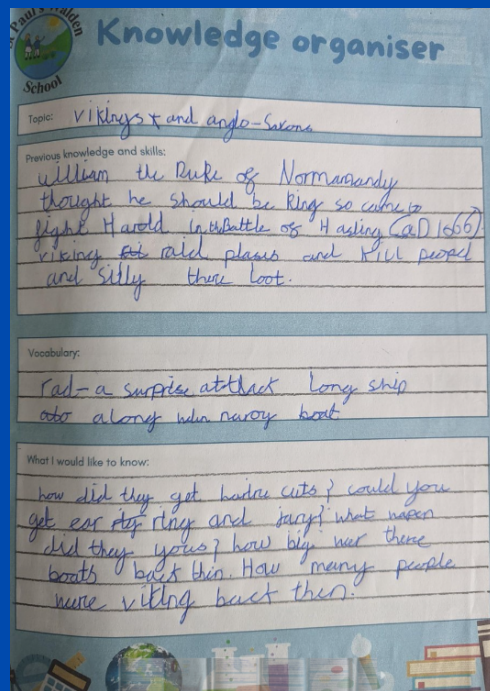 St Paul's Walden
School
Knowledge organiser
Topic: Vikings + and anglo-Saxons
Previous knowledge and skills:
william the Duke of Normanandy
thought he should be king so came to
fight Harold in the Battle of Hasting (aD 1066)
viking raid plases and kill peopel
and silly there loot.
Vocabulary:
rad - a surprise atthack Long ship
a long naroy boat
What I would like to know:
how did they get cuts? could you
get ear ring and what wapen
did they yous? how big wer there
boats back thin. How many people
were viking back then.